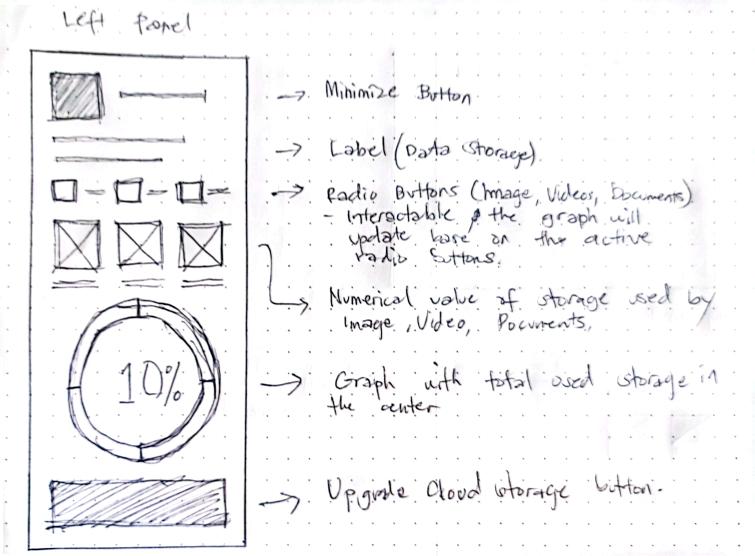 Left Panel
Minimize Button
Label (Data Storage)
Radio Buttons (Image, Videos, Documents)
- Interactable & the graph will
update base on the active
radio buttons.
Numerical value of storage used by
Image, Video, Documents.
10%
Graph with total used storage in
the center
Upgrade Cloud storage button.